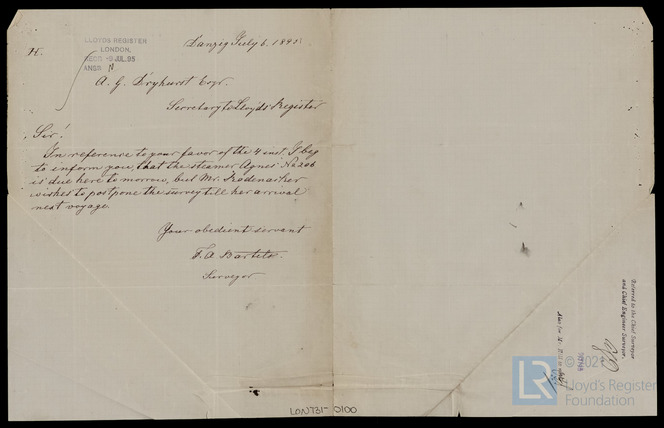 H.
LLOYDS REGISTER
LONDON.
RECD 9 JUL.95
ANSD N
Danzig July 6. 1895.
A. G. Dryhurst Esqr.
Secretary to Lloyds Register
Sir!
In reference to your favor of the 4 inst. I beg
to inform you, that the steamer Agnes No 206
is due here to morrow, but Mr. Rodenacker
wishes to postpone the survey till her arrival
next voyage.
Your obedient servant
F. A. Bartels.
Surveyor
Referred to the Chief Surveyor
and Chief Engineer Surveyor,
LR
© 2021
Lloyd's Register
Foundation
LON731-0100